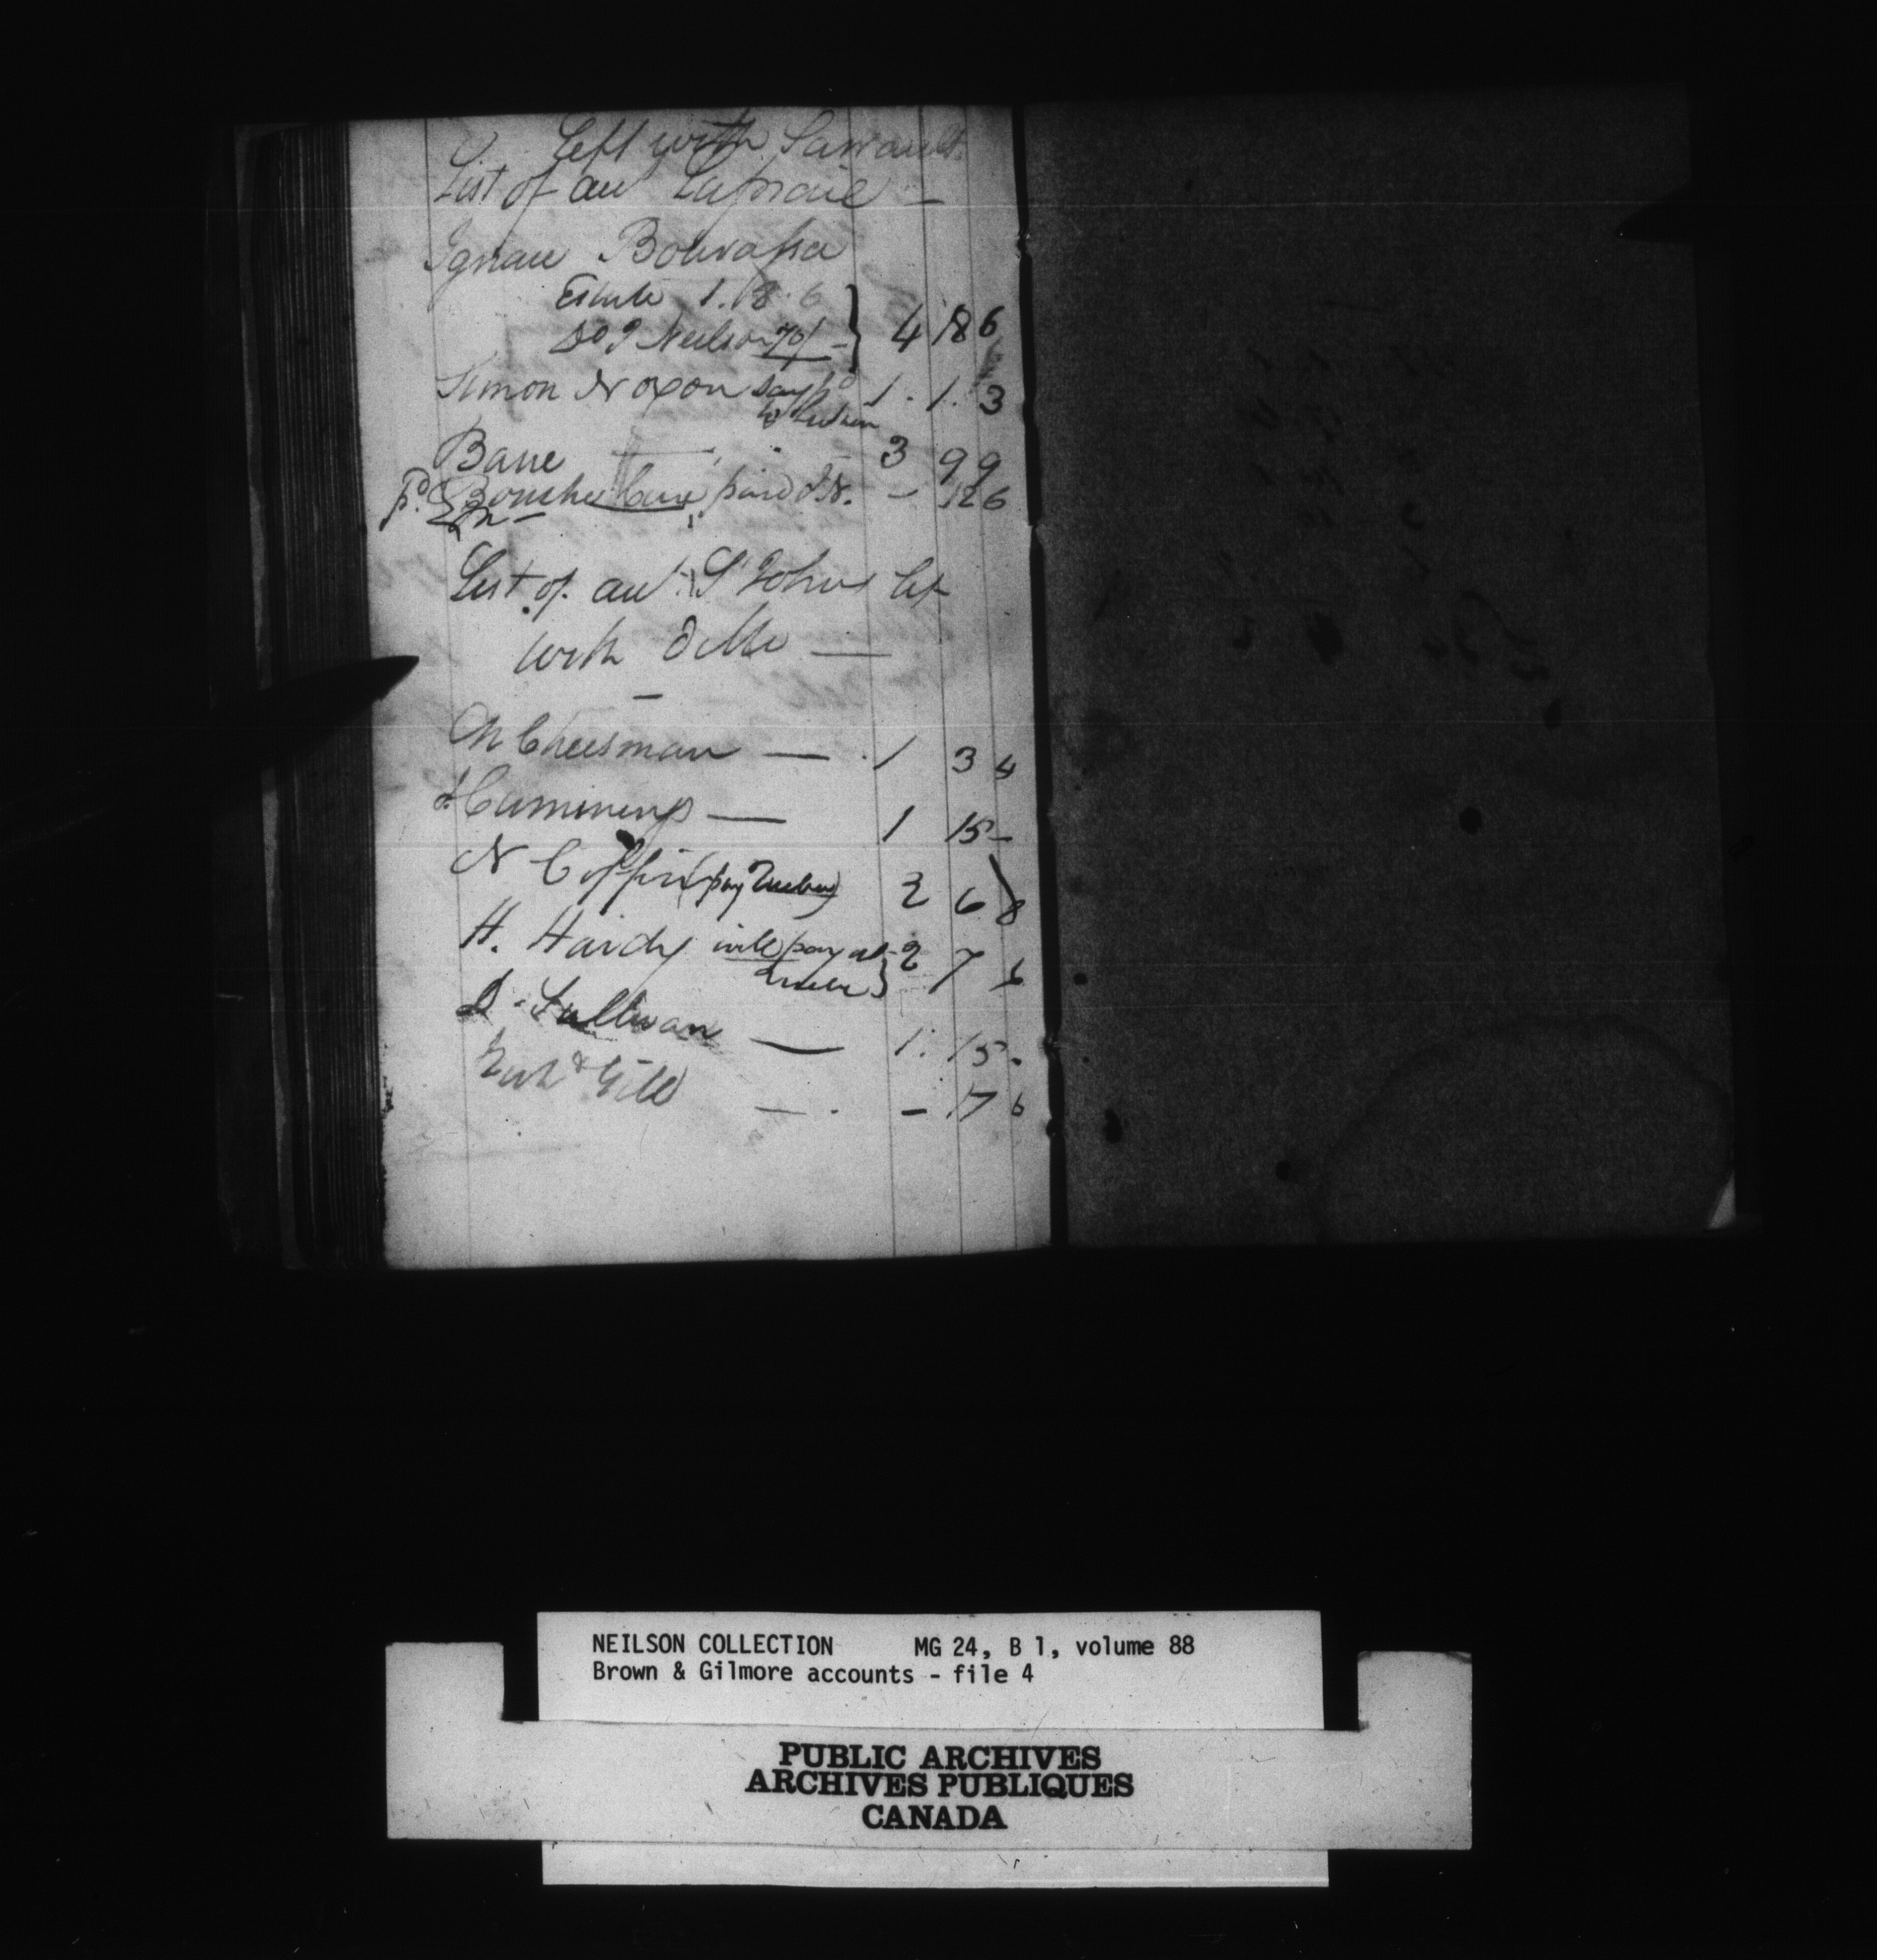 Left with Sarrault
List of au^t Laprarie —
Ignace Bourassa
Estate 1.18.6
Do J Neilson 70/ — } 4 18 6
Simon Noxon say p^d 1 . 1 . 3
to
Barre — 3 9 9
p^d Boucher Cure paid J N. — 12 6
List of au^t S^t Johns left
with ditto —
—
Cheesman — . 1 3 4
Cummings — 1 15 –
N Coffin (pay Quebec) 2 6 8
H. Hardy will pay at } 2 7 6
Quebec
D. Sullivan — 1 . 15 -
& Gill — . – . 17 6
NEILSON COLLECTION MG 24, B 1, volume 88
Brown & Gilmore accounts - file 4
PUBLIC ARCHIVES
ARCHIVES PUBLIQUES
CANADA